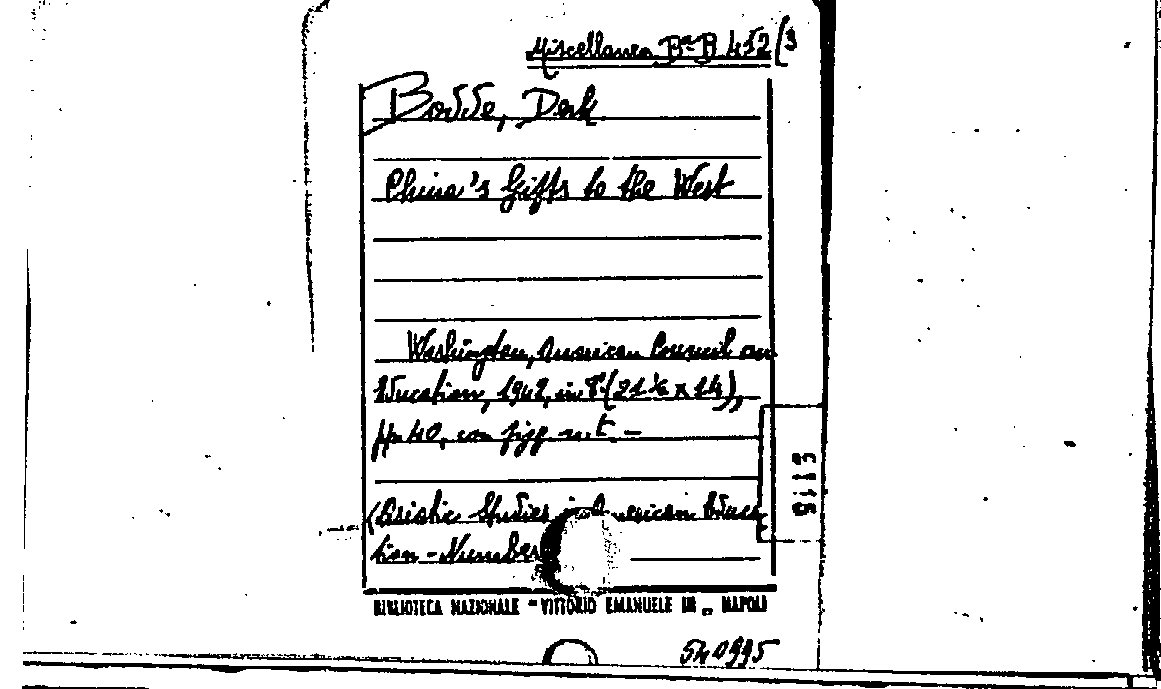 Miscellanea Bª B 452/3
Bodde, Derk
China's Gifts to the West
Washington, American Council on
Education, 1942, in 8° (21 ½ x 14),
pp. 40, con figg. n. t. -
(Asiatic Studies in American Educa
tion - Number
BIBLIOTECA NAZIONALE "VITTORIO EMANUELE III" NAPOLI
540995